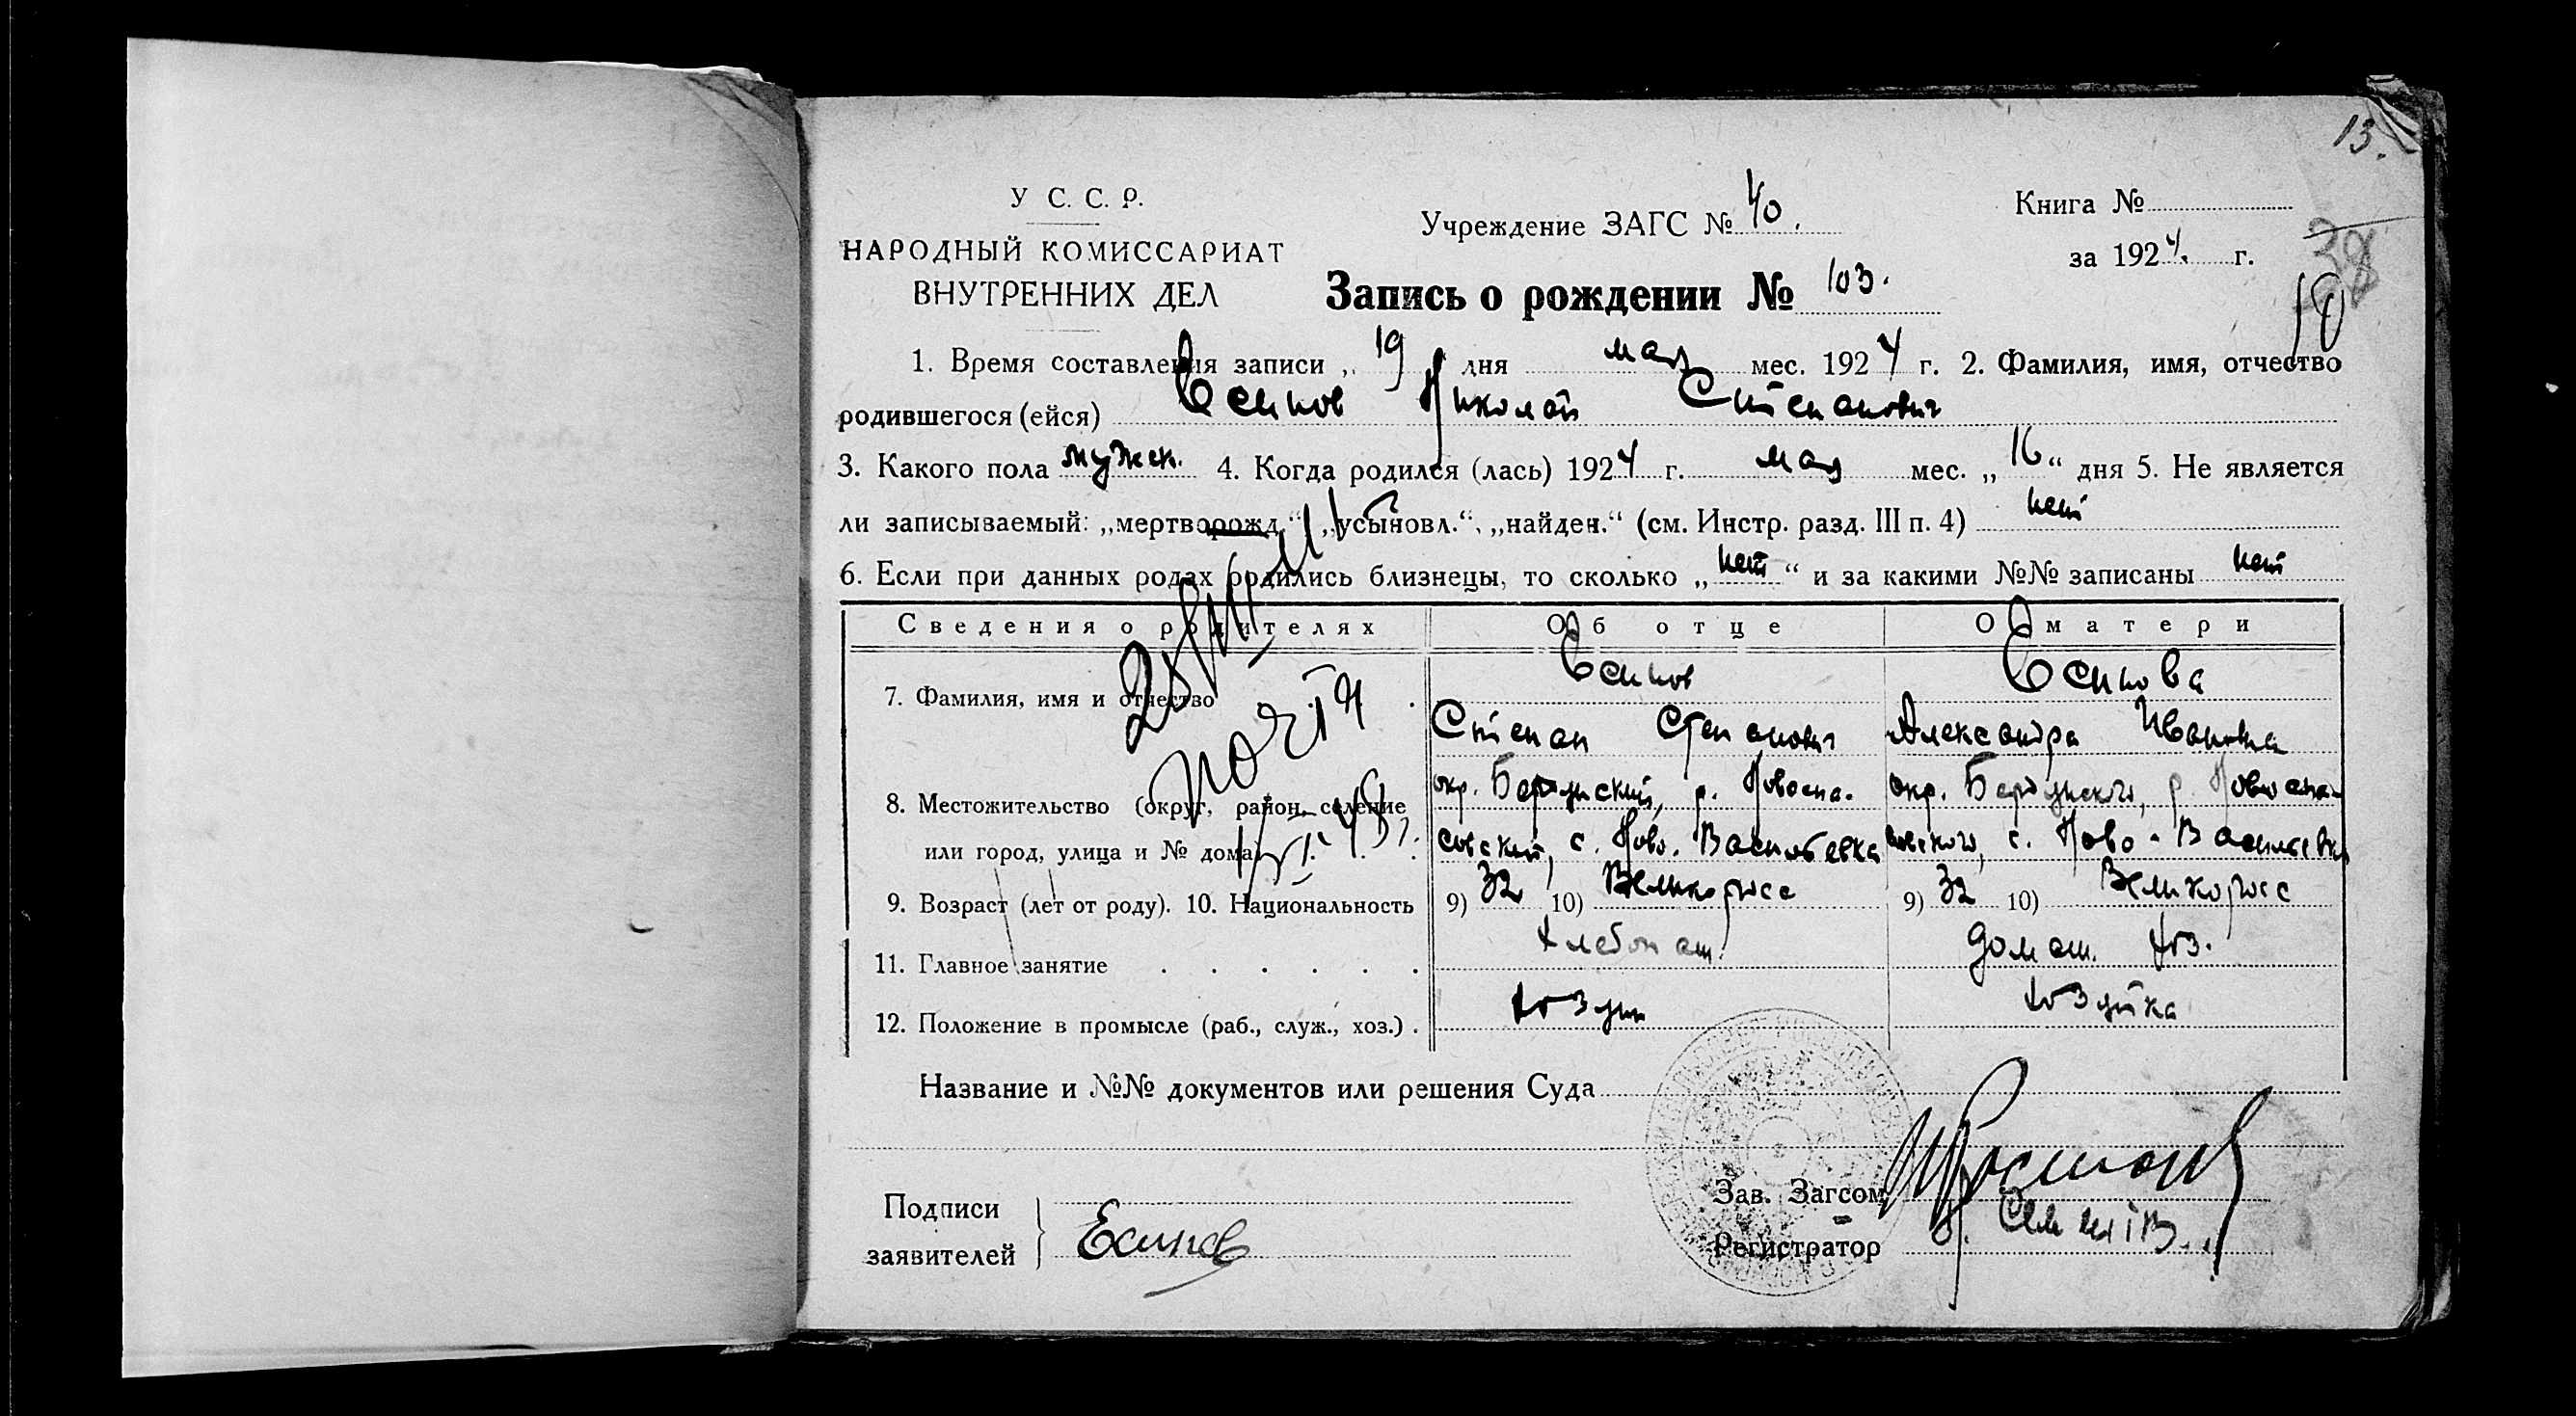 13.
У С. С. Р.
НАРОДНЫЙ КОМИССАРИАТ
ВНУТРЕННИХ ДЕЛ
Учреждение ЗАГС № 40.
Книга №
за 1924. г.
38
10
Запись о рождении № 103.
1. Время составления записи „ 19 дня мая мес. 1924 г. 2. Фамилия, имя, отчество
родившегося (ейся) Есипов Николай Степанович
3. Какого пола мужск. 4. Когда родился (лась) 1924 г. мая мес. „16“ дня 5. Не является
ли записываемый: „мертворожд.“, „усыновл.“, „найден.“ (см. Инстр. разд. III п. 4) нет
6. Если при данных родах родились близнецы, то сколько „нет“ и за какими №№ записаны нет
Сведения о родителях Об отце О матери
7. Фамилия, имя и отчество Есипов Есипова
Степан Степанович Александра Ивановна
8. Местожительство (округ, район, селение окр. Бердянский, р. Новоспа- окр. Бердянского, р. Новоспа-
или город, улица и № дома) совский, с. Ново-Васильевка совского, с. Ново-Васильевка
9. Возраст (лет от роду). 10. Национальность 9) 32 10) Великоросс 9) 32 10) Великоросс
11. Главное занятие Хлебопаш. домаш. хоз.
12. Положение в промысле (раб., служ., хоз.) Хозяин хозяйка
Название и №№ документов или решения Суда
Подписи
заявителей Есипов
Зав. Загсом
Регистратор